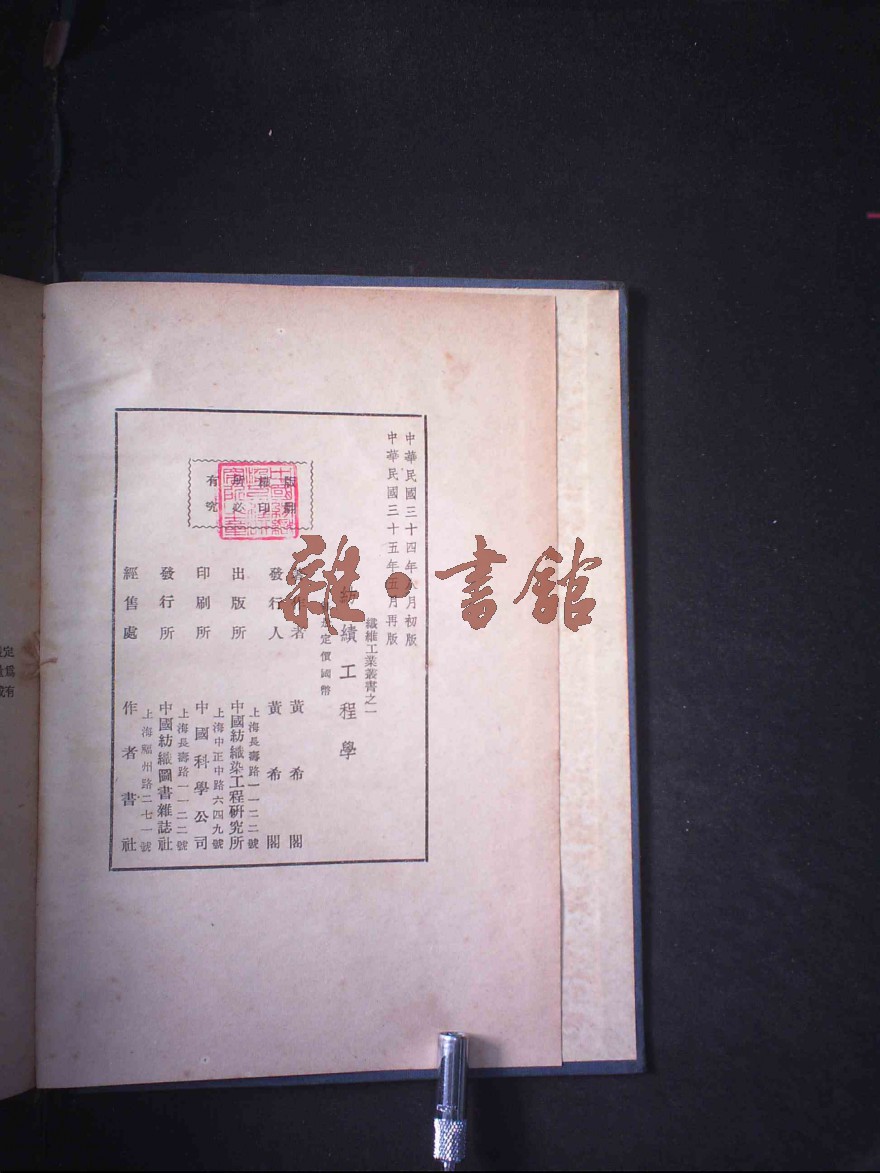 中華民國三十四年八月初版
中華民國三十五年五月再版
纖維工業叢書之一
紡績工程學
定價國幣
著作者 黃希閣
發行人 黃希閣
上海長壽路一一二二號
出版所 中國紡織染工程研究所
上海中正中路六四九號
印刷所 中國科學公司
上海長壽路一一二二號
發行所 中國紡織圖書雜誌社
上海福州路二七一號
經售處 作者書社
版權所有
翻印必究
雜·書館
定
為
有